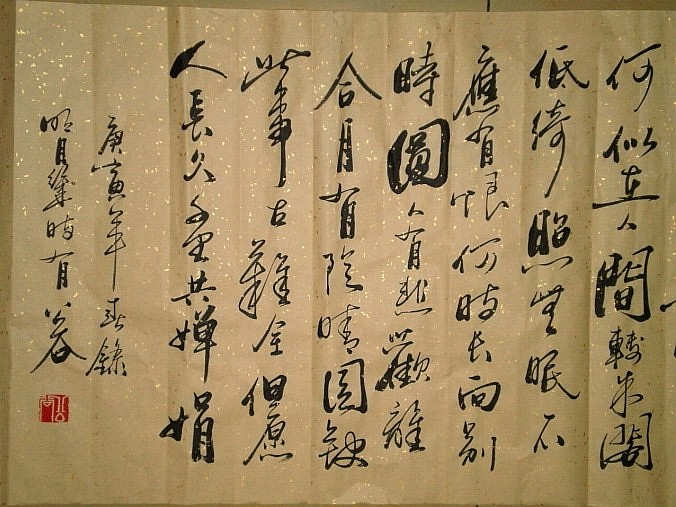 何似在人間轉朱閣
低綺照無眠不
應有恨何時长向別
時圓人有悲歡離
合月有陰晴圆缺
此事古難全但願
人長久千里共嬋娟
庚寅年春錄
明月幾時有